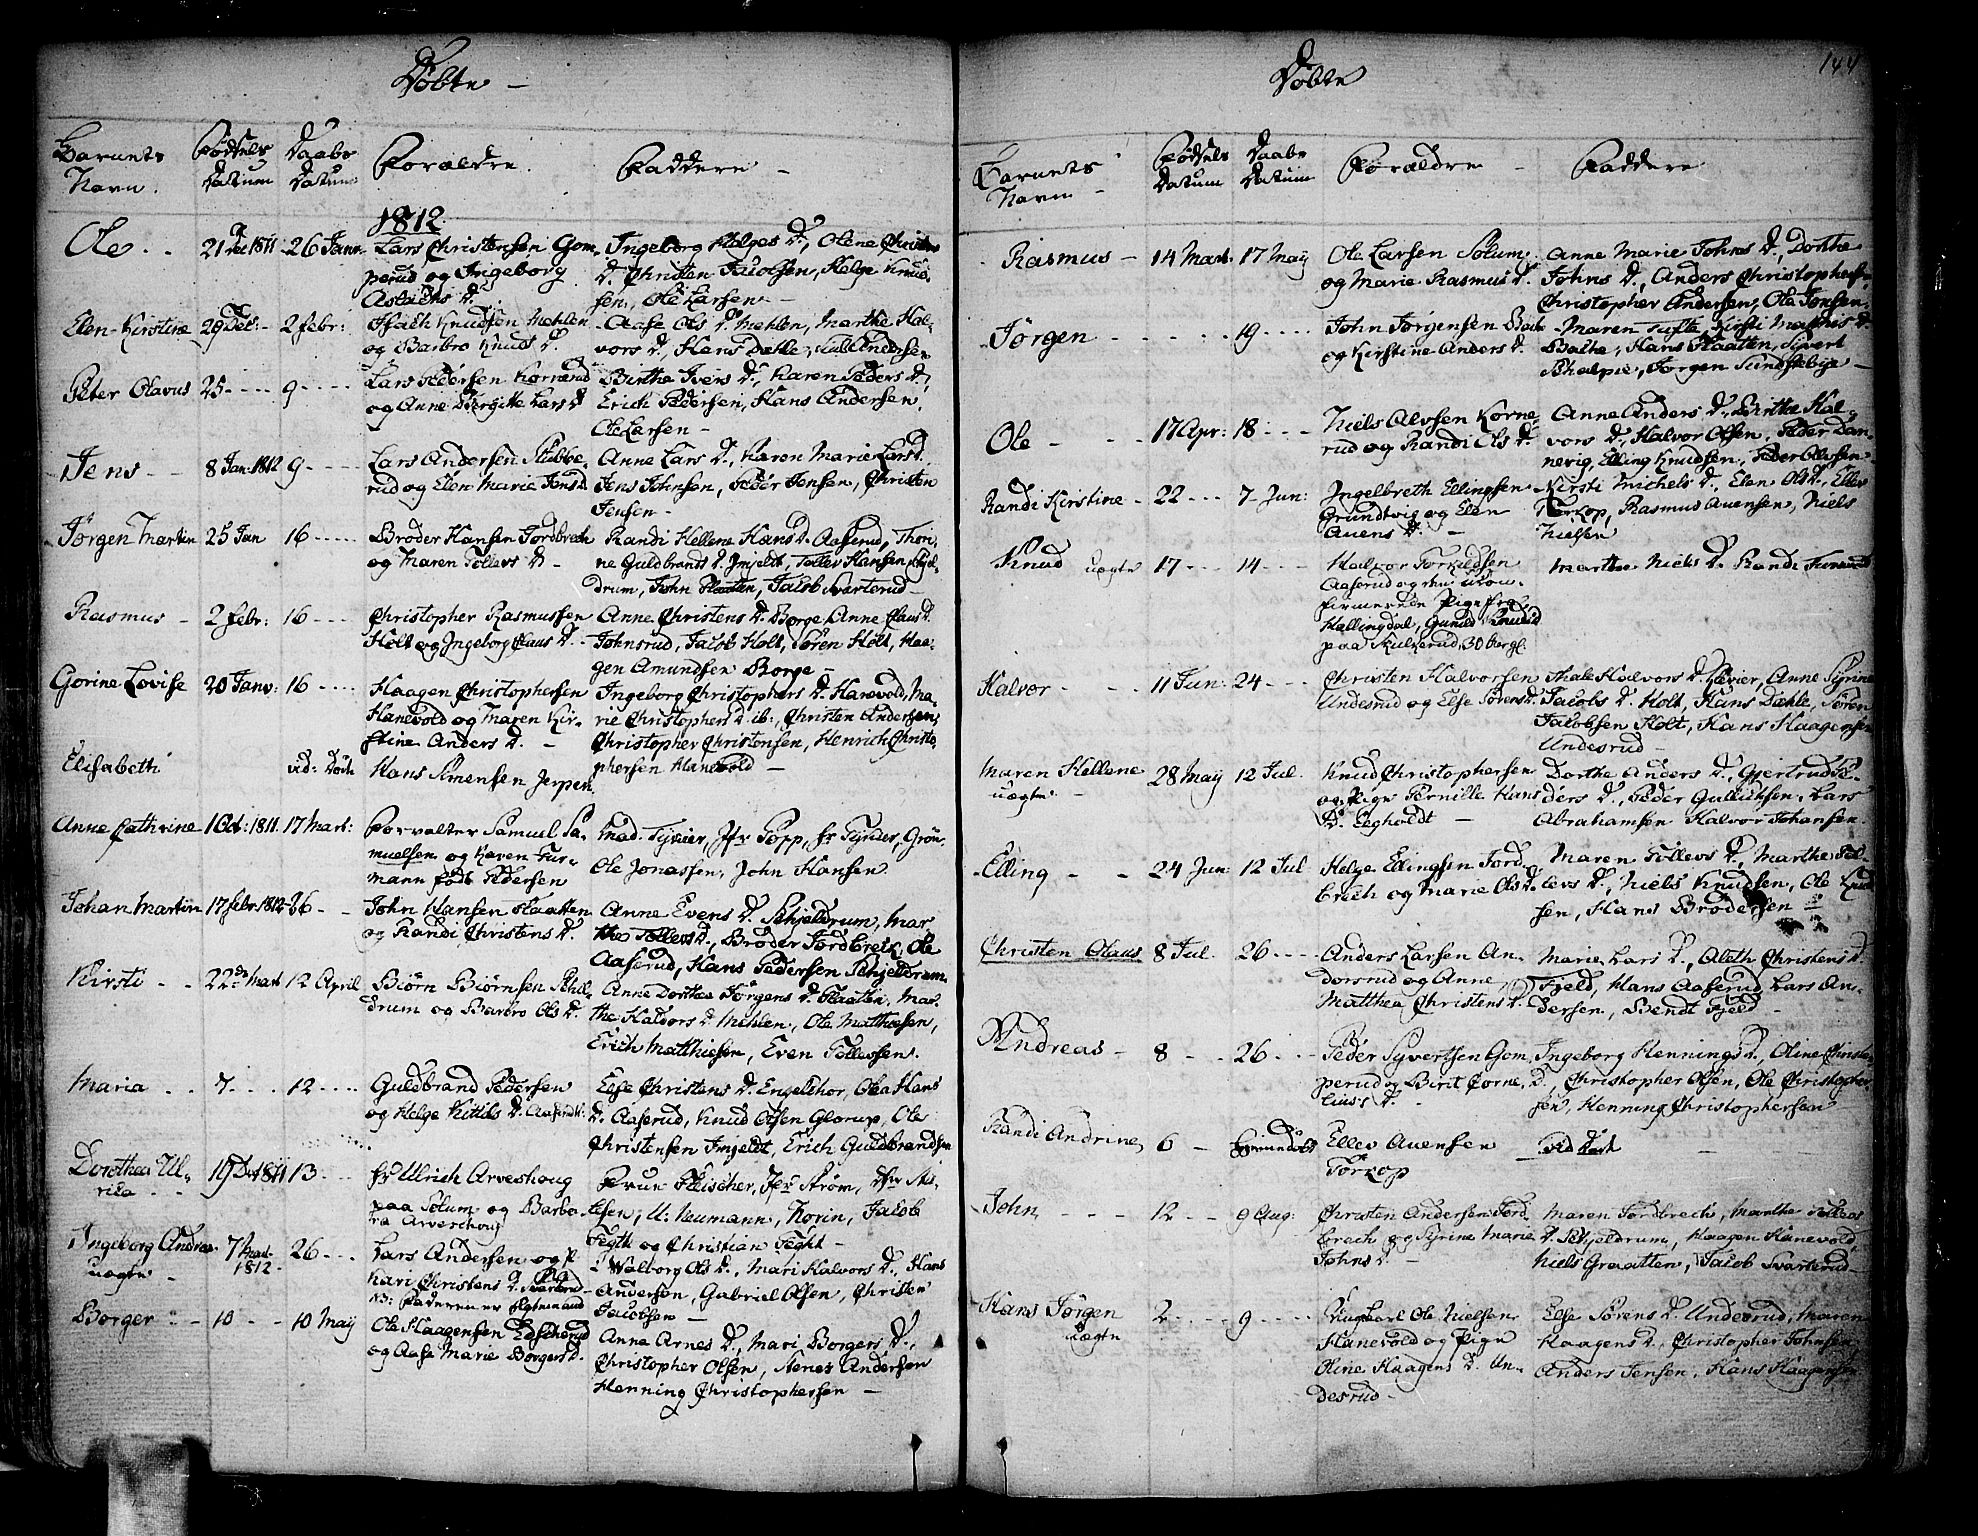 Døbte –
Barnets Navn.
Fødsels Datum
Daabs Datum
Forældre.
Faddere –
1812.
Ole . . 21 Dec 1811 . 26 Janr.
Lars Christensen Gom-
perud og Ingeborg
Aslachs D.
Ingeborg Helges D., Olene Christens
D. Christen Jacobsen, Helge Knud-
sen, Ole Larsen –
Elen Kirstine 29 Dec: – 2 febr:
Isach Knudsen Mehlen
og Barbro Knuds D.
Aase Ols D. Mehlen, Marthe Hal-
vors D., Hans Dæhle, Andersen
Peter Olavus 25 – – – 9 – – –
Lars Pedersen Kornerud
og Anne Birgitte Lars D
Birthe Ivers D., Karen Peders D.,
Erich Pedersen, Hans Andersen,
Ole Larsen –
Jens – – 8 Jan: 1812 9 – – –
Lars Andersen Stubbe-
rud og Elen Marie Jens D.
Anne Lars D., Karen Marie Lars D.
Jens Johnsen, Peder Jensen, Christen
Jensen –
Jørgen Martin 25 Jan 16 – – –
Brøder Hansen Jordbrech
og Maren Tollevs D –
Randi Hellene Hans D. Aaserud, Thon-
ne Guldbrands D. Imjeldt, Tollev Hansen Skjel-
drum, John Flaaten, Jacob Svarterud –
Rasmus – 2 febr: 16 – – –
Christopher Rasmussen
Holt og Ingeborg Claus D. –
Anne Christens D. Borge Anne Claus D.
Johnsrud, Jacob Holt, Søren Holt, Haa-
gen Amundsen Borge –
Gorine Lovise 20 Janv: 16 – – –
Haagen Christophersen
Hanevold og Maren Kir-
stine Anders D. –
Ingeborg Christophers D. Hanevold, Ma-
rie Christophers D. ib:, Christen Andersen,
Christopher Christensen, Henrich Christo-
phersen Hanevold –
Elisabeth
Hans Simensen Jerpen
Anne Cathrine 1 Oct: 1811. 17 Mart:
Forvalter Samuel Sa-
muelsen og Karen Fur-
mann født Pedersen
Mad. Jfr Popp, fr
Ole Jonassen, John Hansen
Johan Martin 17 febr. 1812 26 – –
John Hansen Flaatten
og Randi Christens D.
Anne Evens D. Schjeldrum, Mar-
the Tollevs D., Brøder Jordbrech, Ole
Aaserud, Hans Pedersen Schjeldrum
Kirsti . . 22de Mart 12 April
Biørn Biørnsen Schil-
drum og Barbro Ols D.
Anne Dorthea Jørgens D. Flaaten, Mar-
the Halvors D. Mehlen, Ole Matthiesen,
Erich Matthiesen, Even Tollevsen.
Maria . . 7 – – – 12 – – –
Guldbrand Pedersen
og Helge Kittils D. Aaserud
Else Christens D. Engelthor, Olea Hans
D. Aaserud, Knud Olsen Glorup, Ole
Christensen Imjeldt, Erich Guldbrandsen
Dorothea Ul-
rica . . 19 Dec 1811 13 – –
fr Ulrich Arveschoug
paa Solum og Barba-
ra Arveschoug
Frue Fleischer, Jfr Strøm, Jfr Nil-
sen, U: Neumann, Korin, Jacob
Fegth og Christian Feght –
Ingeborg Andrea
uægte – 7 Mart 1812. 26 – – –
Lars Andersen og P.
Kari Christens D.
NB: Faderen er
Walborg Ols D., Mari Halvors D., Hans
Andersen, Gabriel Olsen, Christen
Jacobsen –
Borger – 10 – – 10 May
Ole Haagensen
og Aase Marie Borgers D.
Anne Arnes D., Mari Borgers D.,
Christopher Olsen, Arnes Andersen
Henning Christophersen –
Døbte
144
Barnets Navn –
Fødsels Datum
Daabs Datum
Forældre –
Faddere
Rasmus – 14 Mart: 17 May
Ole Larsen Solum
og Marie Rasmus D.
Anne Marie Johns D., Dorthe
Johns D., Anders Christophersen,
Christopher Andersen, Ole Jonsen
Jørgen – – – – 19 – – –
John Jørgensen Bathe
og Kirstine Anders D.
Maren Tufte, Kirsti Mathis D.
Bathe, Hans Flaatten, Sivert
Jørgen Sundstebye –
Ole – – 17 Apr: 18 – – –
Niels Alvsen Korne-
rud og Randi Ols D.
Anne Anders D., Birthe Hal-
vors D., Halvor Olsen, Peder Dan-
nevig, Elling Knudsen, Peder Olevsen
Randi Kirstine – 22 – – – 7 Jun:
Ingelbreth Ellingsen
Grundtvig og Elen
Auens D. –
Kirsti Michels D., Elen Ols D., Ellev
Torkop, Rasmus Auensen, Niels
Nielsen
Knud uægte 17 – – – 14 – – –
Halvor Torkildsen
Aaserud og den ukon-
firmerede Pige fra
Hallingdal, Gunild Knuds D
paa Skulkerud, 30 bergl:
Marthe Niels D. Randi
Halvor – – 11 Jun: 24 – – –
Christen Halvorsen
Undesrud og Else Sørens D.
Athale Halvors D. Anne Syrine
Jacobs D. Holt, Hans Dæhle, Søren
Jacobsen Holt, Hans Haagensen
Undesrud –
Maren Hellene
uægte – 28 May 12 Jul.
Knud Christophersen
og Pige Pernille Hans
D. Egholdt –
Dorthe Anders D., Gjertrud Pe-
ders D., Peder Gulliksen, Lars
Abrahamsen Halvor Johansen.
Elling – – 24 Jun: 12 Jul
Helge Ellingsen Jord-
brech og Marie Ols D.
Maren Tollevs D., Marthe Tol-
levs D., Niels Knudsen, Ole Knud-
sen, Hans Brødersen –
Christen Olaus 8 Jul. 26 – – –
Anders Larsen An-
dorsrud og Anne
Matthea Christens D.
Marie Lars D., Aleth Christens D.
Fjeld, Hans Aaserud, Lars An-
dersen, Bendt Fjeld –
Andreas – 8 – – 26 – – –
Peder Syvertsen Gom-
perud og Birit Corne-
lius's D. –
Ingeborg Hennings D., Oline Christens
D., Christopher Olsen, Ole Christopher-
sen, Henning Christophersen
Randi Andrine, 6 –
Ellev Auensen
Torkop
John – – – 12 – – 9 Aug:
Christen Andersen Jord-
brech og Syrine Marie
Johns D. –
Maren Jordbrech, Marthe Tollevs
D. Schjeldrum, Haagen Hanevold,
Niels Graatten, Jacob Svarterud –
Hans Jørgen
uægte 2 – – – 9 – – –
Ungkarl Ole Nielsen
Hanevold og Pige
Oline Haagens D. Un-
desrud –
Else Sørens D. Undesrud, Maren
Haagens D., Christopher Johnsen
Anders Jensen, Hans Haagensen